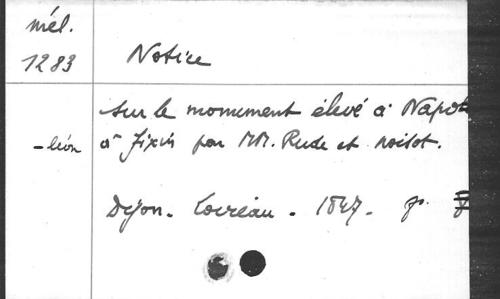 mél.
1283
Notice
sur le monument élevé à Napo
-léon à Fixin par MM. Rude et Noisot.
Dijon. Loireau. 1847. fo.